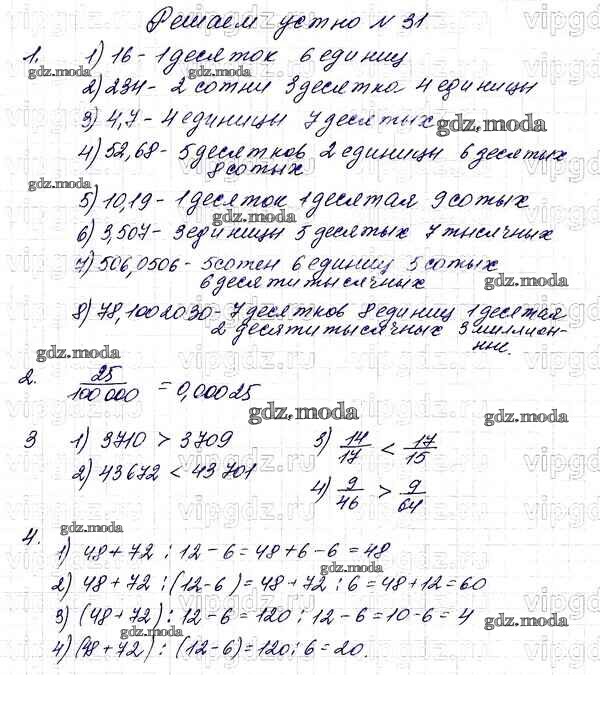 Решаем устно №31
1. 1) 16 - 1 десяток 6 единиц
gdz.moda
2) 234 - 2 сотни 3 десятка 4 единицы
3) 4,7 - 4 единицы 7 десятых
gdz.moda
4) 52,68 - 5 десятков 2 единицы 6 десятых
8 сотых
gdz.moda
5) 10,19 - 1 десяток 1 десятая 9 сотых
gdz.moda
6) 3,507 - 3 единицы 5 десятых 7 тысячных
7) 506,0506 - 5 сотен 6 единиц 5 сотых
6 десятитысячных
gdz.moda
8) 78,1002030 - 7 десятков 8 единиц 1 десятая
2 десятитысячных 3 миллион-
ные.
gdz.moda
2. 25/100 000 = 0,00025
gdz.moda
gdz.moda
3 1) 3710 > 3709 3) 14/17 < 17/15
2) 43672 < 43701 4) 9/46 > 9/64
gdz.moda
4. 1) 48 + 72 : 12 - 6 = 48 + 6 - 6 = 48
gdz.moda
2) 48 + 72 : (12 - 6) = 48 + 72 : 6 = 48 + 12 = 60
3) (48 + 72) : 12 - 6 = 120 : 12 - 6 = 10 - 6 = 4
gdz.moda
gdz.moda
4) (48 + 72) : (12 - 6) = 120 : 6 = 20.
vipgdz.ru